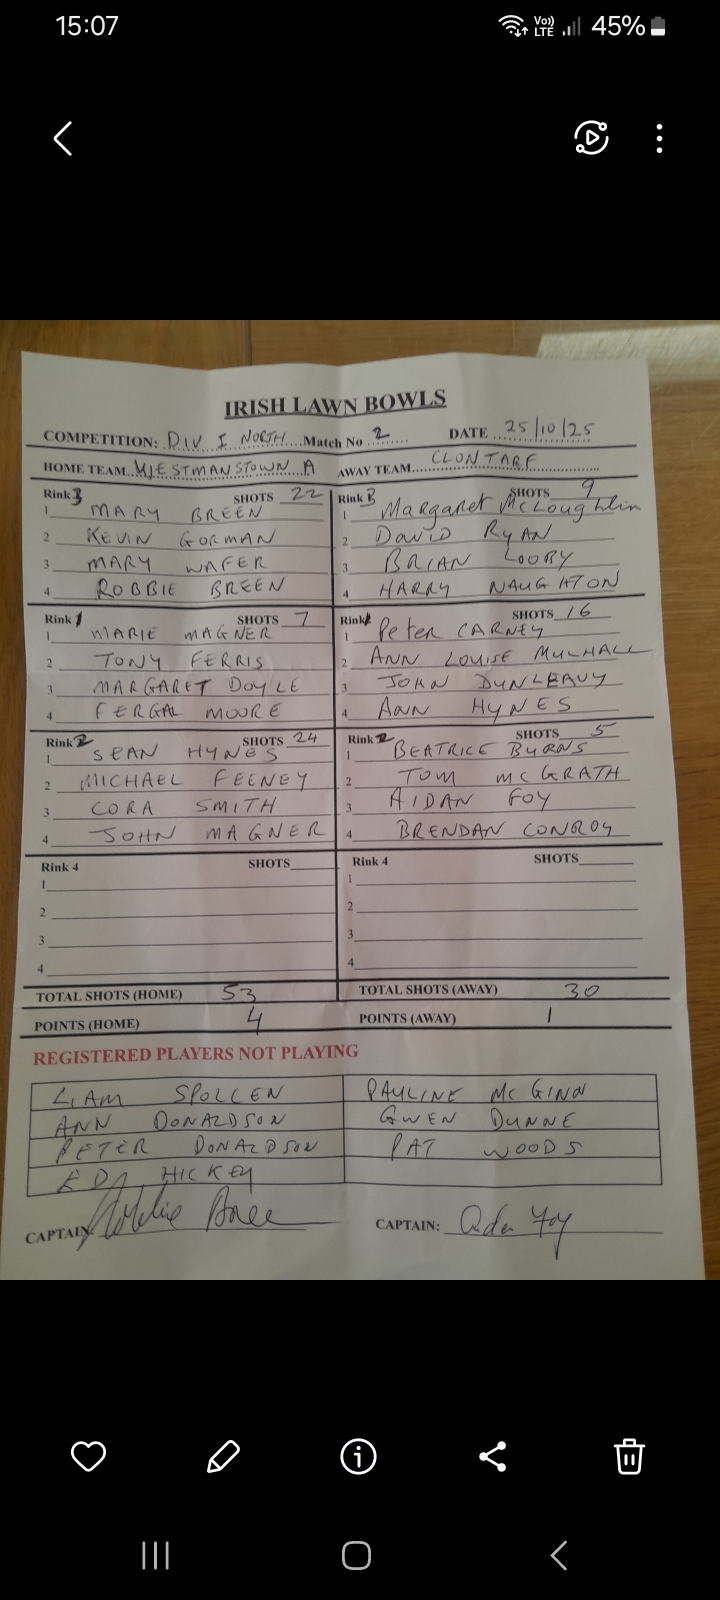 15:07 Vo)) LTE 45%
IRISH LAWN BOWLS
COMPETITION: DIV I NORTH Match No 2 DATE 25/10/25
HOME TEAM WESTMANSTOWN A AWAY TEAM CLONTARF
Rink 3 SHOTS 22
1 MARY BREEN
2 KEVIN GORMAN
3 MARY WAFER
4 ROBBIE BREEN
Rink 3 SHOTS 9
1 Margaret McLoughlin
2 David RYAN
3 BRIAN LOOBY
4 HARRY NAUGHTON
Rink 1 SHOTS 7
1 MARIE MAGNER
2 TONY FERRIS
3 MARGARET DOYLE
4 FERGAL MOORE
Rink 1 SHOTS 16
1 Peter CARNEY
2 ANN LOUISE MULHALL
3 JOHN DUNLEAVY
4 ANN HYNES
Rink 2 SHOTS 24
1 SEAN HYNES
2 MICHAEL FEENEY
3 CORA SMITH
4 JOHN MAGNER
Rink 2 SHOTS 5
1 BEATRICE BYRNS
2 TOM MCGRATH
3 AIDAN FOY
4 BRENDAN CONROY
Rink 4 SHOTS
1
2
3
4
Rink 4 SHOTS
1
2
3
4
TOTAL SHOTS (HOME) 53 TOTAL SHOTS (AWAY) 30
POINTS (HOME) 4 POINTS (AWAY) 1
REGISTERED PLAYERS NOT PLAYING
LIAM SPOLLEN PAULINE MCGINN
ANN DONALDSON GWEN DUNNE
PETER DONALDSON PAT WOODS
ED HICKEY
CAPTAIN: CAPTAIN: